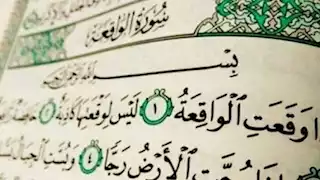 سُورَةُ الوَاقِعَةِ
بِسْمِ اللَّهِ الرَّحْمَٰنِ الرَّحِيمِ
وَقَعَتِ ٱلْوَاقِعَةُ ١ لَيْسَ لِوَقْعَتِهَا كَاذِبَةٌ ٢
رُجَّتِ ٱلْأَرْضُ رَجًّا ٤ وَبُسَّتِ ٱلْجِبَالُ